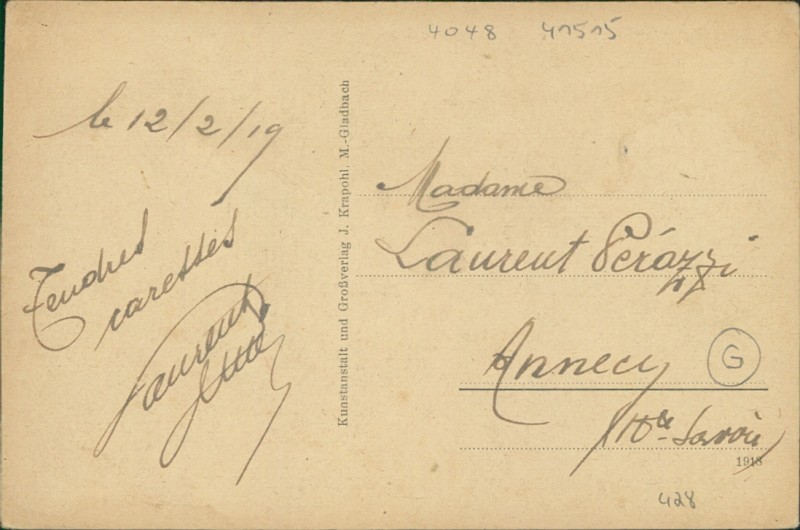 4048 41515
le 12/2/19
Tendres
caresses
Laurent
Kunstanstalt und Großverlag J. Krapohl, M.-Gladbach
Madame
Laurent Pérozzi
Annecy
G
(Hte Savoie)
1918
428